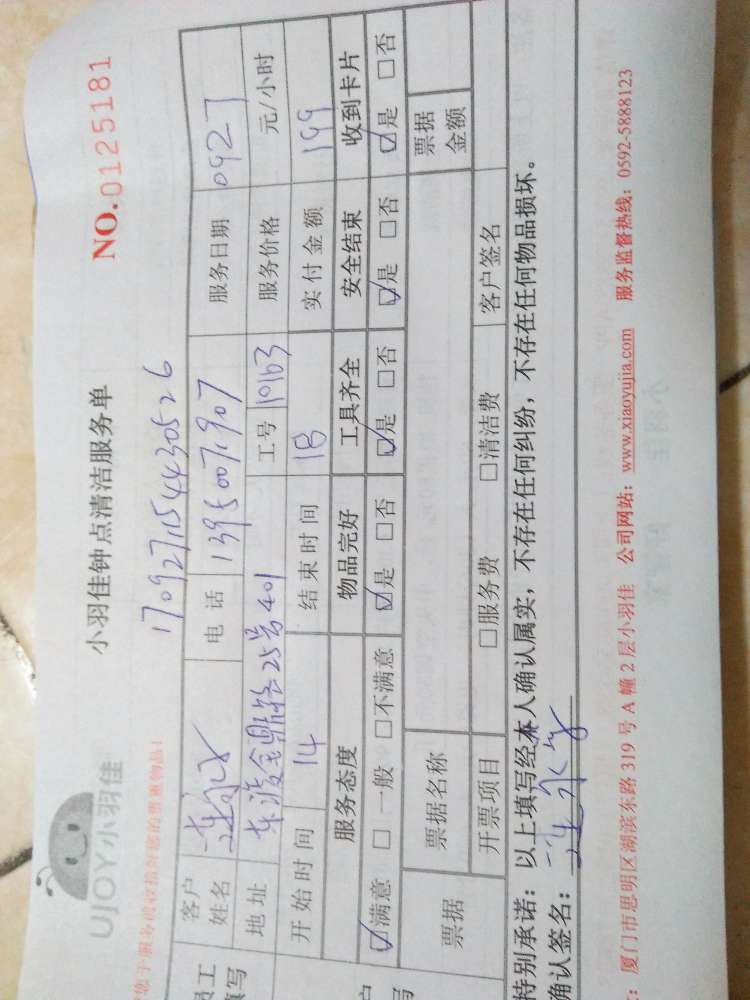 UJOY小羽佳
小羽佳钟点清洁服务单
NO.0125181
1709271154430526
客户姓名 电话 13950071907 服务日期 0927
地址 25号401 工号 10163 服务价格 元/小时
开始时间 14 结束时间 18 实付金额 199
服务态度 物品完好 工具齐全 安全结束 收到卡片
☑满意 □一般 □不满意 ☑是 □否 ☑是 □否 ☑是 □否 ☑是 □否
票据 票据名称 票据金额
开票项目 □服务费 □清洁费 客户签名
特别承诺：以上填写经本人确认属实，不存在任何纠纷，不存在任何物品损坏。
确认签名：
厦门市思明区湖滨东路319号A幢2层小羽佳 公司网站：www.xiaoyujia.com 服务监督热线：0592-5888123